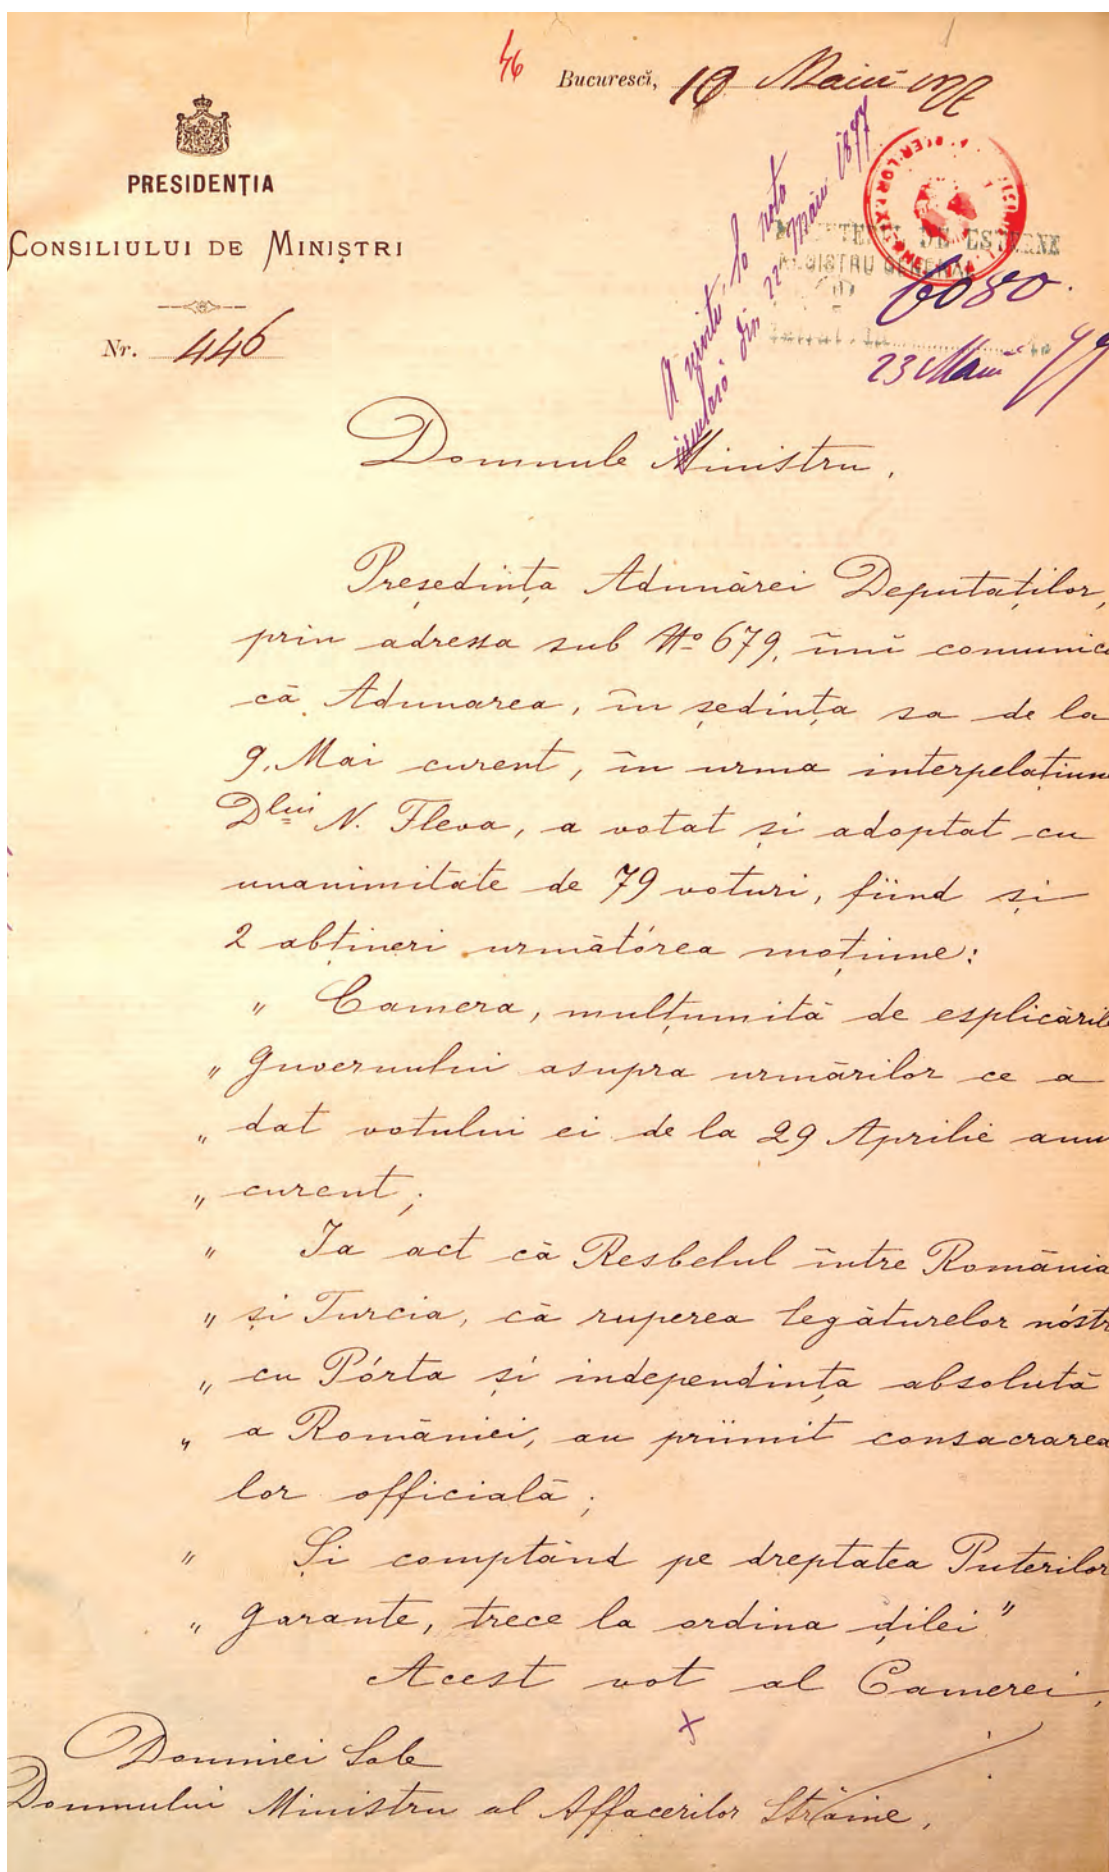 46
Bucurescĭ, 19 Maiŭ 1877
PRESIDENȚIA
CONSILIULUI DE MINIȘTRI
Nr. 446
nota
din 22 Maiu 1877
MINISTERUL DE ESTERNE
REGISTRU GENERAL
6080.
23 Maiu 77
Domnule Ministru,
Președința Adunărei Deputaților,
prin adressa sub No 679, îmĭ comunică
că Adunarea, în ședința sa de la
9. Mai curent, în urma interpelațiune
Dlui N. Fleva, a votat și adoptat cu
unanimitate de 79 voturi, fiind și
2 abțineri următórea moțiune:
" Camera, mulțumită de esplicările
" Guvernului asupra urmărilor ce a
" dat votului ei de la 29 Aprilie anu
" curent;
" Ia act că Resbelul între România
" și Turcia, că ruperea legăturelor nóstre
" cu Pórta și independința absolută
" a Românieĭ, au priimit consacrarea
lor officială;
" Și comptând pe dreptatea Puterilor
" Garante, trece la ordina ḑilei"
Acest vot al Camerei,
Domniei Sale
Domnului Ministru al Affacerilor Străine,